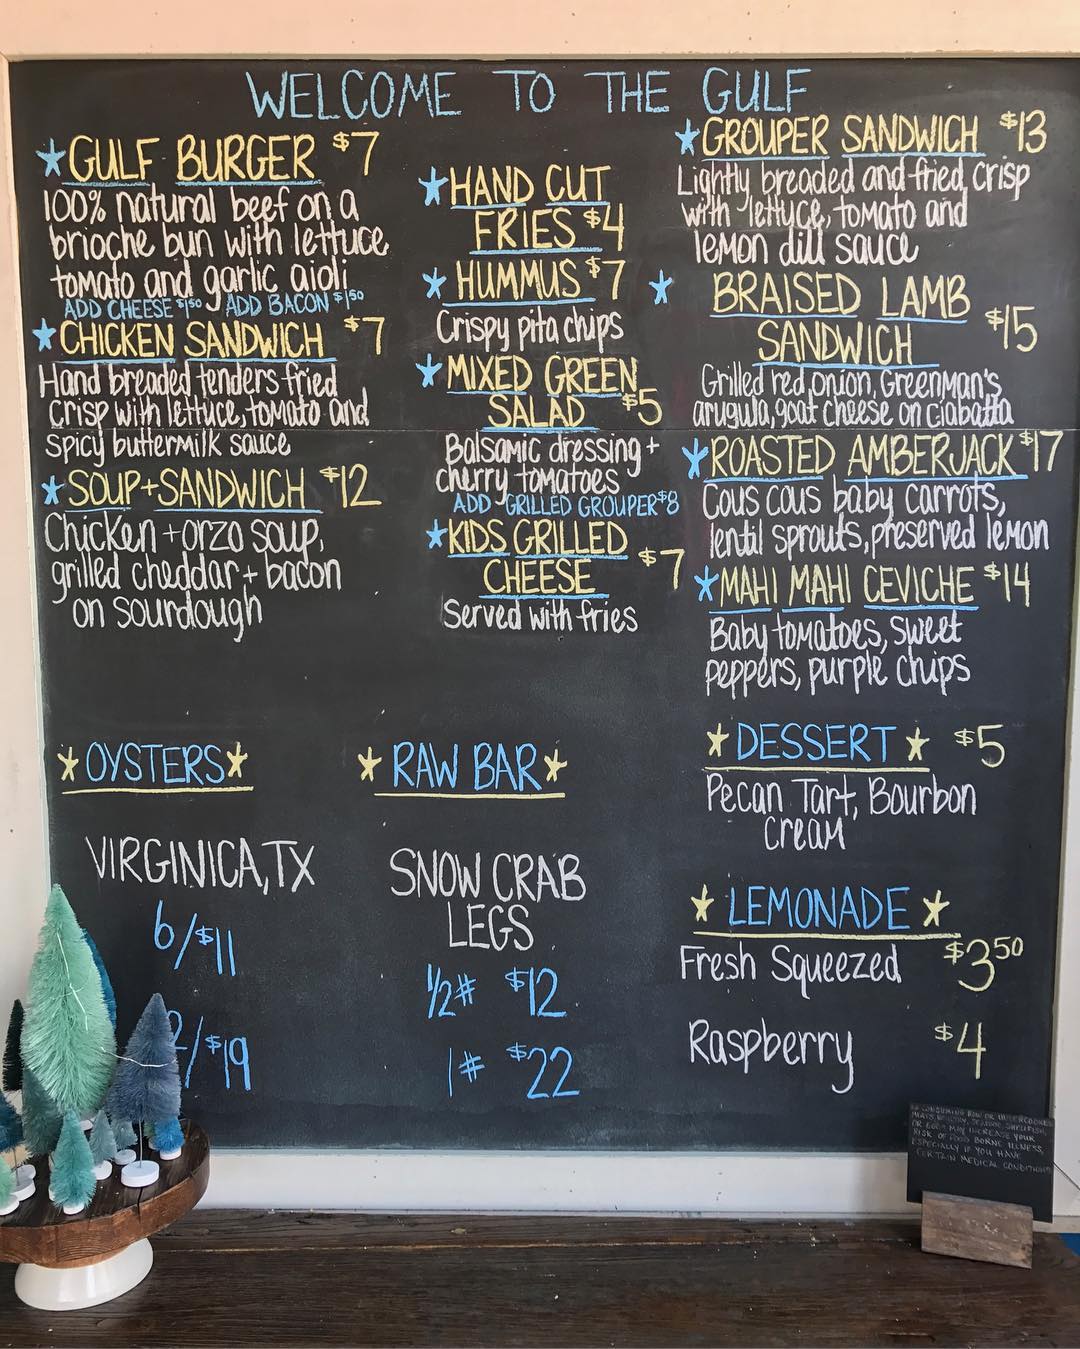 WELCOME TO THE GULF
GULF BURGER $7
100% natural beef on a
brioche bun with lettuce
tomato and garlic aioli
ADD CHEESE $1.50 ADD BACON $1.50
CHICKEN SANDWICH $7
Hand breaded tenders fried
crisp with lettuce, tomato and
spicy buttermilk sauce
SOUP+SANDWICH $12
Chicken + orzo soup,
grilled cheddar + bacon
on sourdough
HAND CUT
FRIES $4
HUMMUS $7
Crispy pita chips
MIXED GREEN
SALAD $5
Balsamic dressing +
cherry tomatoes
ADD GRILLED GROUPER $8
KIDS GRILLED
CHEESE $7
Served with fries
GROUPER SANDWICH $13
Lightly breaded and fried crisp
with lettuce, tomato and
lemon dill sauce
BRAISED LAMB
SANDWICH $15
Grilled red onion, Greenman's
arugula, goat cheese on ciabatta
ROASTED AMBERJACK $17
Cous cous baby carrots,
lentil sprouts, preserved lemon
MAHI MAHI CEVICHE $14
Baby tomatoes, sweet
peppers, purple chips
OYSTERS
VIRGINICA, TX
6/$11
2/$19
RAW BAR
SNOW CRAB
LEGS
1/2# $12
1# $22
DESSERT $5
Pecan Tart, Bourbon
Cream
LEMONADE
Fresh Squeezed $3.50
Raspberry $4
CONSUMING RAW OR UNDERCOOKED
MEATS, POULTRY, SEAFOOD, SHELLFISH
OR EGGS MAY INCREASE YOUR
RISK OF FOOD BORNE ILLNESS,
ESPECIALLY IF YOU HAVE
CERTAIN MEDICAL CONDITIONS